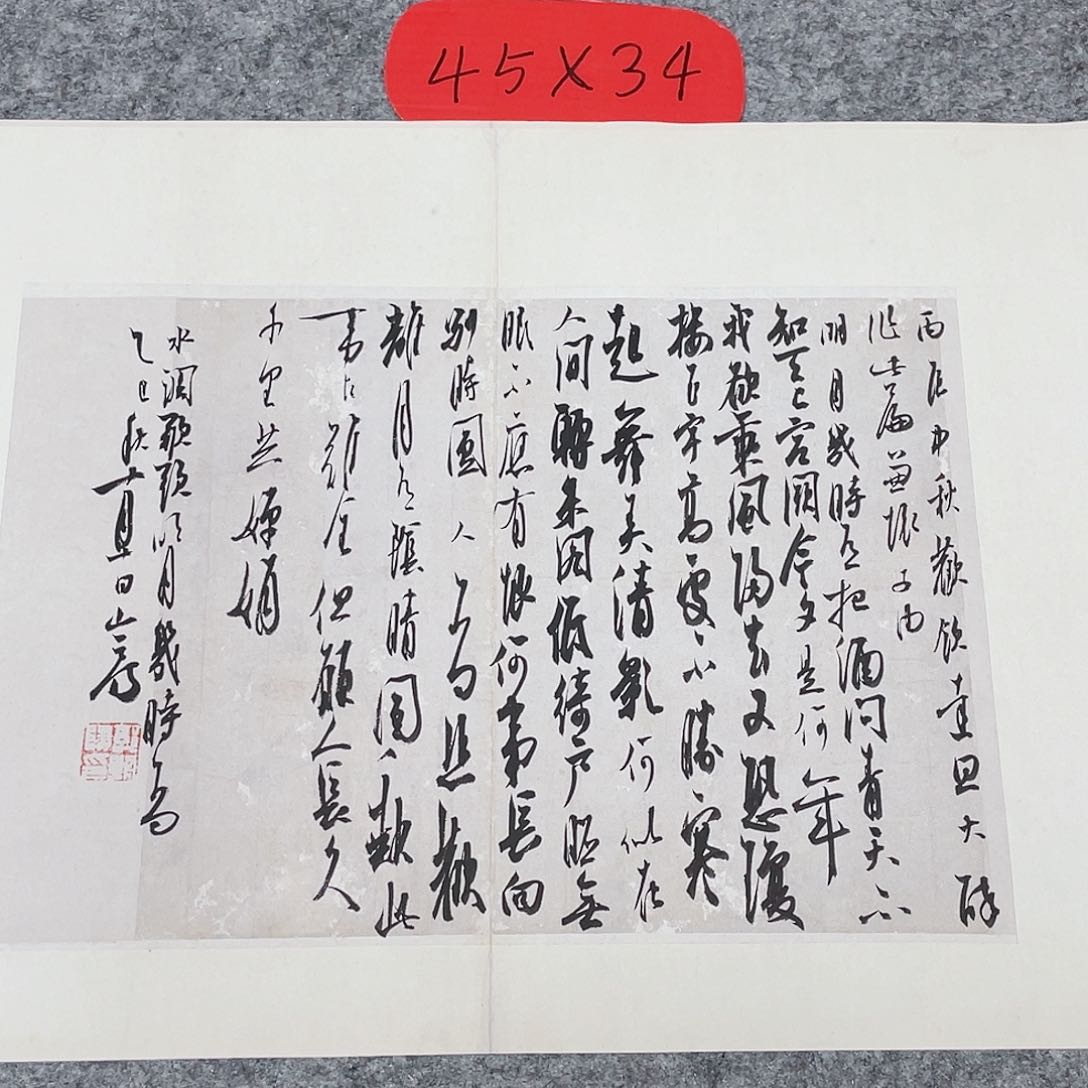 45X34
丙辰中秋歡飲達旦大醉
作此篇兼懷子由
明月幾時有把酒問青天不
知天上宮闕今夕是何年
我欲乘風歸去又恐瓊
樓玉宇高處不勝寒
起舞弄清影何似在
人間轉朱閣低綺戶照無
眠不應有恨何事長向
別時圓人有悲歡
離月有陰晴圓缺此
事古難全但願人長久
千里共嬋娟
水調歌頭明月幾時有
乙巳秋十月五日山谷